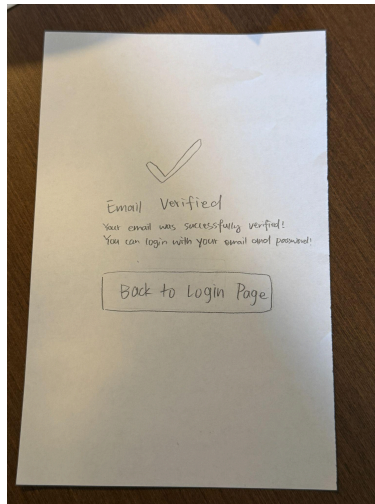 Email Verified
Your email was successfully verified!
You can login with your email and password!
Back to Login Page